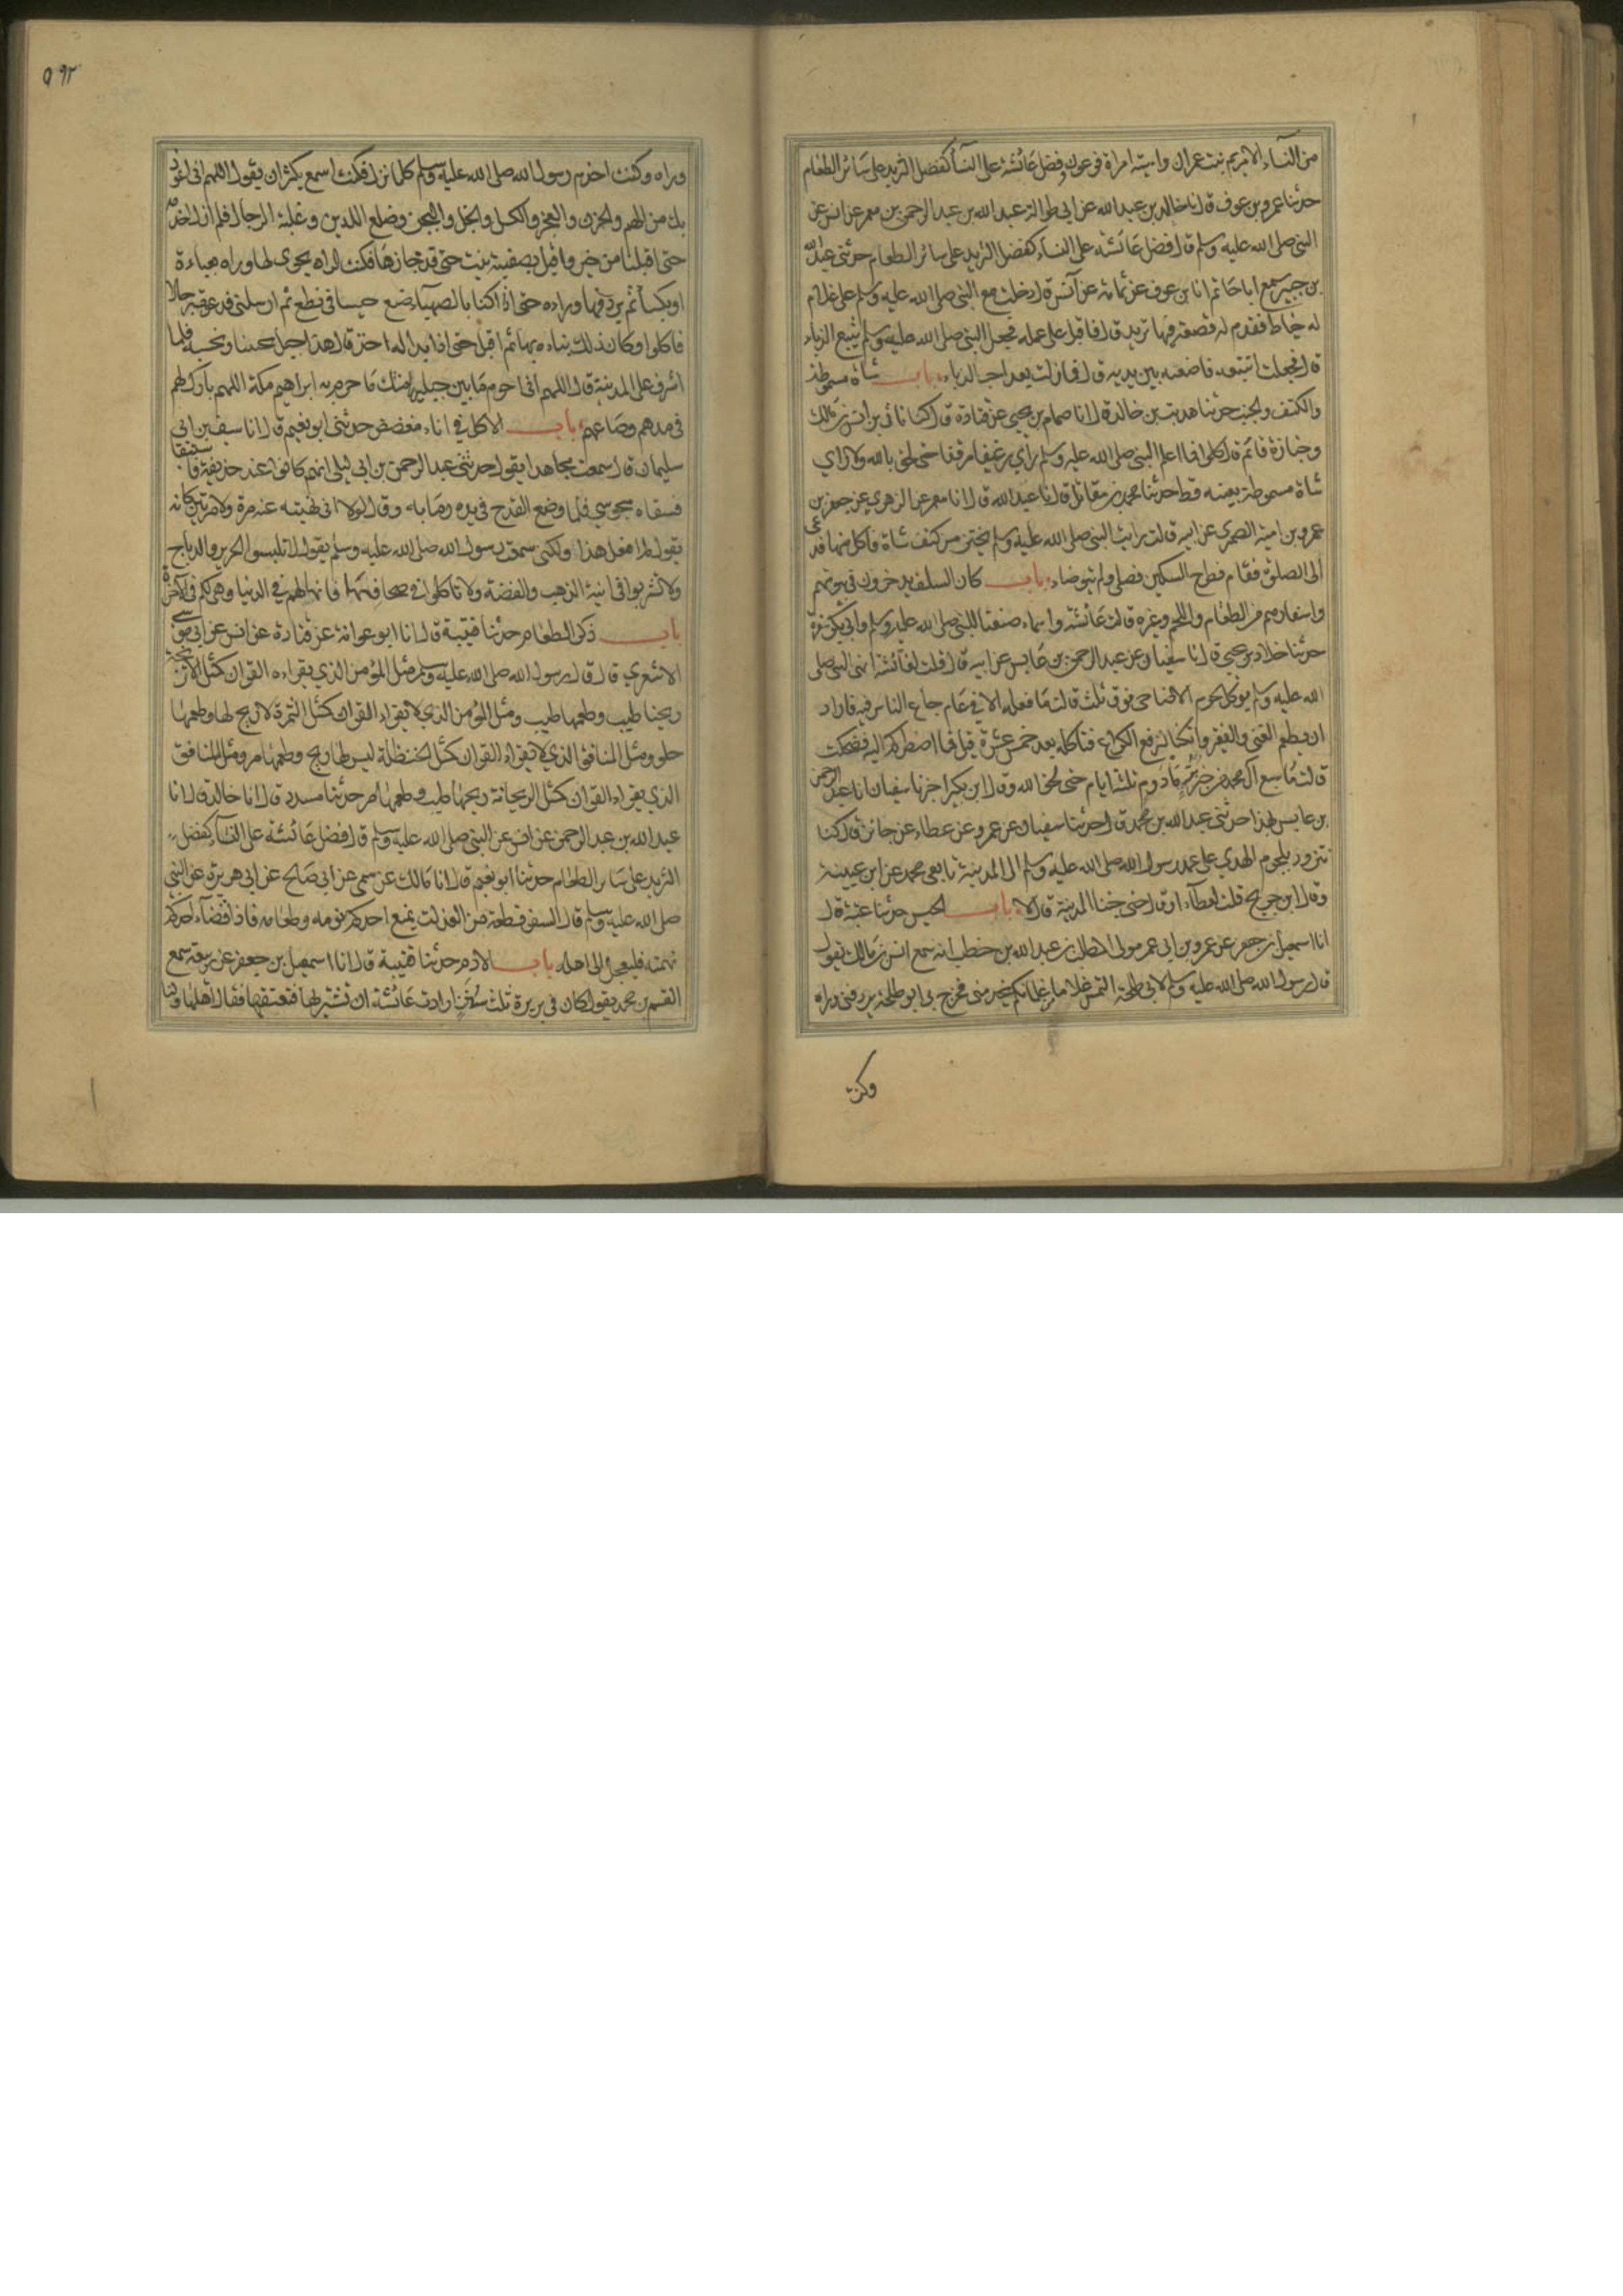 من النساء الا مريم بنت عمران واسية امراة فرعون وفضل عائشة على النسأ كفضل الثريد على سائر الطعام
حدثنا عمرو بن عوف قال انا خالد بن عبد الله عن ابي طوالة عبد الله بن عبد الرحمن بن معمر عن انس عن
النبي صلى الله عليه وسلم قال فضل عائشة على النساء كفضل الثريد على سائر الطعام حدثني عبد الله
بن جبير سمع ابا حاتم انا بن عوف عن ثمامة عن أنس قال دخلت مع النبي صلى الله عليه وسلم على غلام
له خياط فقدم له قصعة فيها ثريد قال فاقبل على عمله فجعل النبي صلى الله عليه وسلم يتبع الدباء
قال فجعلت اتتبعه فاضعه بين يديه قال فما زلت بعد احب الدباء باب شاة مسموطة
والكتف والجنب حدثنا هدبة بن خالد قال انا همام بن يحيى عن قتادة قال كنا نأتي بن انس بن مالك
وخبازه قائم قال كلوا فما اعلم النبي صلى الله عليه وسلم رأي رغيفا مرققا حتى لحق بالله ولا راي
شاة مسموطة بعينه قط حدثنا محمد بن مقاتل قال انا عبد الله قال انا معمر عن الزهري عن جعفر بن
عمرو بن امية الضمري عن ابيه قال رايت النبي صلى الله عليه وسلم يحتز من كتف شاة فاكل منها فدعى
الى الصلوة فقام فطرح السكين فصلى ولم يتوضاء باب كان السلف يدخرون في بيوتهم
واسفارهم من الطعام واللحم وغيره قالت عائشة واسماء صنعنا للنبي صلى الله عليه وسلم وابي بكر سفرة
حدثنا خلاد بن يحيى قال انا سفيان عن عبد الرحمن بن عابس عن ابيه قال قلت لعائشة انهى النبي صلى
الله عليه وسلم يوكل لحوم الاضاحى فوق ثلث قالت ما فعله الا في عام جاع الناس فيه فاراد
ان يطعم الغنى والفقير وان كنا لنرفع الكراع فنأكله بعد خمس عشرة قيل فما اضطركم اليه فضحكت
قالت ما شبع آل محمد من خبز بر مادوم ثلثة ايام حتى لحق الله وقال ابن بكير اخبرنا سفيان انا عبد الرحمن
بن عابس بهذا حدثني عبد الله بن محمد قال حدثنا سفيان عن عمرو عن عطاء عن جابر قال كنا
نتزود بلحوم الهدي على عهد رسول الله صلى الله عليه وسلم الى المدينة تابعه محمد عن ابن عيينة
وقال ابن جريج قلت لعطآء اوقال حتى جئنا المدينة قال لا باب الحيس حدثنا قتيبة قال
انا اسمعيل بن جعفر عن عمرو بن ابي عمر مولى المطلب بن عبد الله بن حنطب انه سمع انس بن مالك يقول
قال رسول الله صلى الله عليه وسلم لابي طلحة التمس غلاما من غلمانكم يخدمني فخرج بي ابو طلحة يردفني وراه
وكنت
٥٩٢
وراه وكنت اخدم رسول الله صلى الله عليه وسلم كلما نزل فكنت اسمع يكثر ان يقول اللهم اني اعوذ
بك من الهم والحزن والعجز والكسل والبخل والجبن وضلع الدين وغلبة الرجال فلم ازل اخدمه
حتى اقبلنا من خيبر واقبل بصفية بنت حي قد حازها فكنت اراه يحوى لها وراه بعباءة
او بكسأ ثم يردفها وراءه حتى اذا كنا بالصهبآء صنع حيسا في نطع ثم ارسلني فدعوت رجالا
فاكلوا وكان ذلك بناءه بها ثم اقبل حتى اذا بدا له احد قال هذا جبل يحبنا ونحبه فلما
اشرف على المدينة قال اللهم اني احرم ما بين جبليها مثل ما حرم به ابراهيم مكة اللهم بارك لهم
في مدهم وصاعهم باب الاكل في اناء مفضض حدثني ابو نعيم قال انا سيف بن ابي
سليمان قال سمعت مجاهدا يقول حدثني عبد الرحمن بن ابي ليلى انهم كانوا عند حذيفة فاستسقا
فسقاه مجوسي فلما وضع القدح في يده رماه به وقال لولا انى نهيته غير مرة ولا مرتين كانه
يقول لم افعل هذا ولكنى سمعت رسول الله صلى الله عليه وسلم يقول لا تلبسوا الحرير والديباج
ولا تشربوا في آنية الذهب والفضة ولا تاكلوا في صحافها فانها لهم في الدنيا وهي لكم في الآخرة
باب ذكر الطعام حدثنا قتيبة قال انا ابو عوانة عن قتادة عن انس عن ابي موسى
الاشعري قال قال رسول الله صلى الله عليه وسلم مثل المؤمن الذي يقراءه القرآن كمثل الاترجة
ريحها طيب وطعمها طيب ومثل المؤمن الذي لا يقراء القران كمثل التمرة لا ريح لها وطعمها
حلو ومثل المنافق الذي لا يقراء القران كمثل الحنظلة ليس لها ريح وطعمها مر ومثل المنافق
الذي يقراء القران كمثل الريحانة ريحها طيب وطعمها مر حدثنا مسدد قال انا خالد قال انا
عبد الله بن عبد الرحمن عن انس عن النبي صلى الله عليه وسلم قال فضل عائشة على النساء كفضل
الثريد على سائر الطعام حدثنا ابو نعيم قال انا مالك عن سمى عن ابي صالح عن ابي هريرة عن النبي
صلى الله عليه وسلم قال السفر قطعة من العذاب يمنع احدكم نومه وطعامه فاذا قضآء احدكم
نهمته فليعجل الى اهله باب الادم حدثنا قتيبة قال انا اسمعيل بن جعفر عن ربيعة سمع
القسم بن محمد يقول كان في بريرة ثلث سنن ارادت عائشة ان تشتريها فتعتقها فقال اهلها ولنا